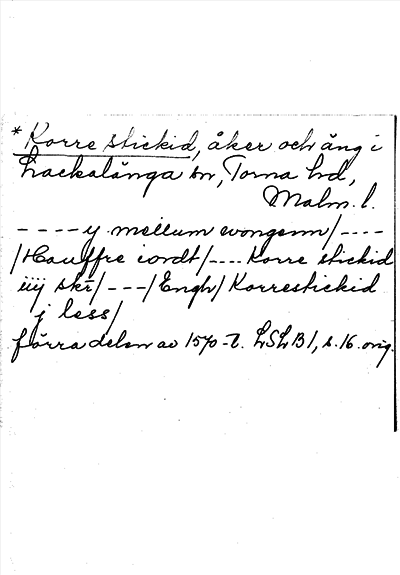 * Korre stickid, åker och äng i
Lackalänga sn, Torna hd,
Malm. l.
- - - - y mellum wongenn/ - - - -
/Hauffre iordt/ - - - - Korre stickid
iiij skr/ - - - /Engh/ Korrestickid
j less/
förra delen av 1570-t. LSLB 1, s. 16. orig.